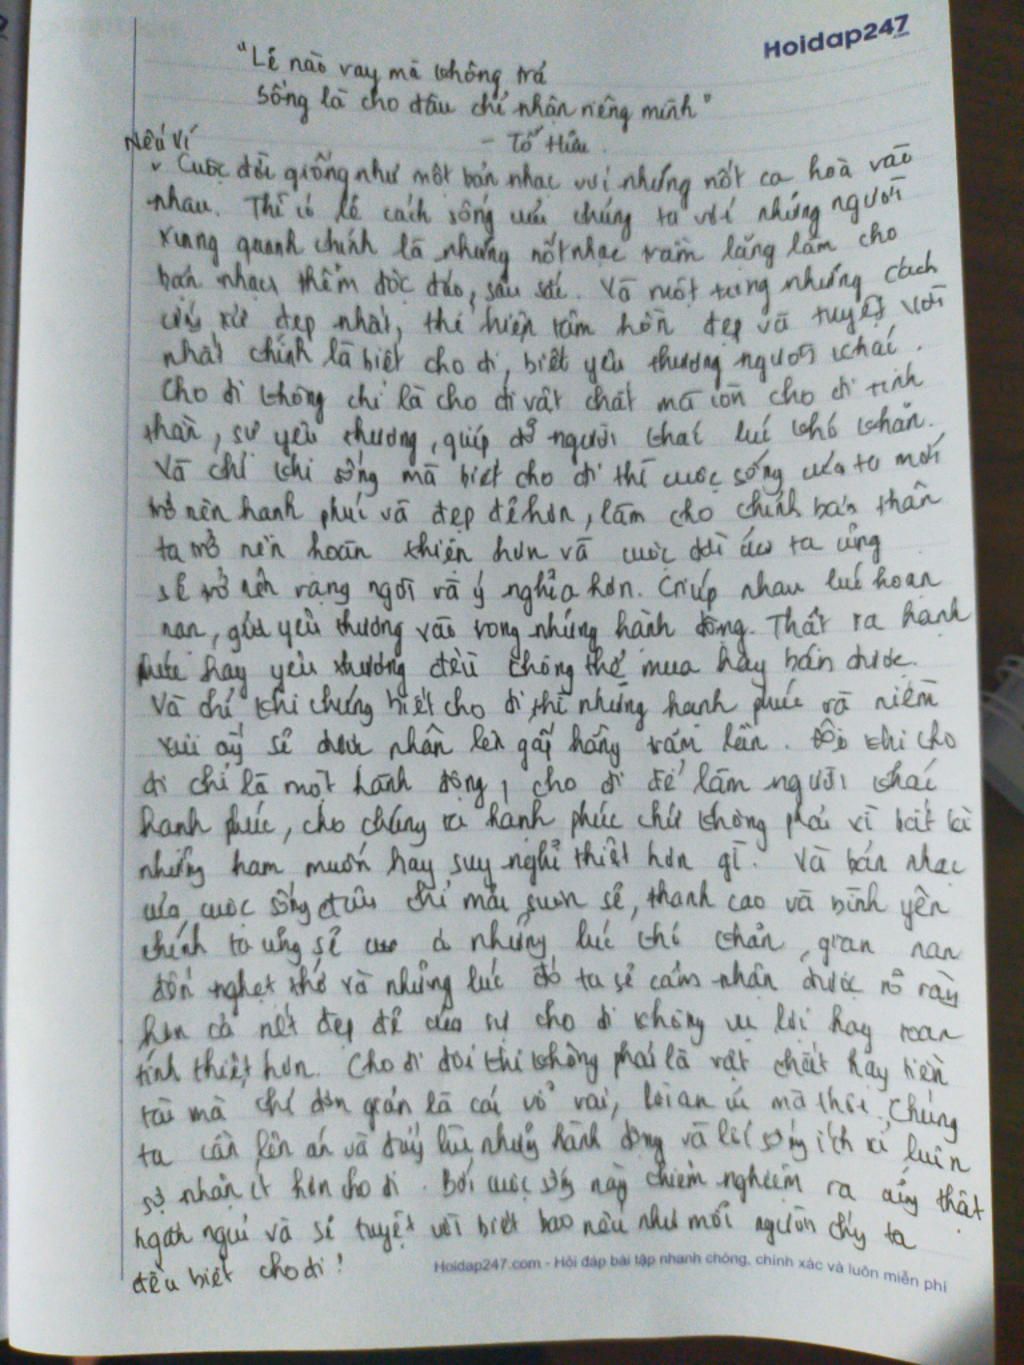 Hoidap247
.com
"Lẽ nào vay mà không trả
Sống là cho đâu chỉ nhận riêng mình"
- Tố Hữu
Nếu ví
Cuộc đời giống như một bản nhạc với những nốt ca hoà vào
nhau. Thì có lẽ cách sống của chúng ta với những người
xung quanh chính là những nốt nhạc trầm lặng làm cho
bản nhạc thêm độc đáo, sâu sắc. Và một trong những cách
cư xử đẹp nhất, thể hiện tâm hồn đẹp và tuyệt vời
nhất chính là biết cho đi, biết yêu thương người khác.
Cho đi không chỉ là cho đi vật chất mà còn cho đi tinh
thần, sự yêu thương, giúp đỡ người khác lúc khó khăn.
Và chỉ khi sống mà biết cho đi thì cuộc sống của ta mới
trở nên hạnh phúc và đẹp đẽ hơn, làm cho chính bản thân
ta trở nên hoàn thiện hơn và cuộc đời của ta cũng
sẽ trở nên rạng ngời và ý nghĩa hơn. Giúp nhau lúc hoạn
nạn, gửi yêu thương vào trong những hành động. Thật ra hạnh
phúc hay yêu thương đều không thể mua hay bán được.
Và chỉ khi chúng biết cho đi thì những hạnh phúc và niềm
vui ấy sẽ được nhân lên gấp hàng trăm lần. Đôi khi cho
đi chỉ là một hành động, cho đi để làm người khác
hạnh phúc, cho chúng ta hạnh phúc chứ không phải vì bất kì
những ham muốn hay suy nghĩ thiệt hơn gì. Và bản nhạc
của cuộc sống đâu chỉ mãi suôn sẻ, thanh cao và bình yên
chính ta cũng sẽ có những lúc khó khăn, gian nan
đến nghẹt thở và những lúc đó ta sẽ cảm nhận được rõ ràng
hơn cả nét đẹp đẽ của sự cho đi không vụ lợi hay toan
tính thiệt hơn. Cho đi đôi khi không phải là vật chất hay tiền
tài mà chỉ đơn giản là cái vỗ vai, lời an ủi mà thôi. Chúng
ta cần lên án và đẩy lùi những hành động và lối sống ích kỉ luôn
sợ nhận ít hơn cho đi. Bởi cuộc sống này chiêm nghiệm ra cũng thật
ngắn ngủi và sẽ tuyệt vời biết bao nếu như mỗi người chúng ta
đều biết cho đi!
Hoidap247.com - Hỏi đáp bài tập nhanh chóng, chính xác và luôn miễn phí